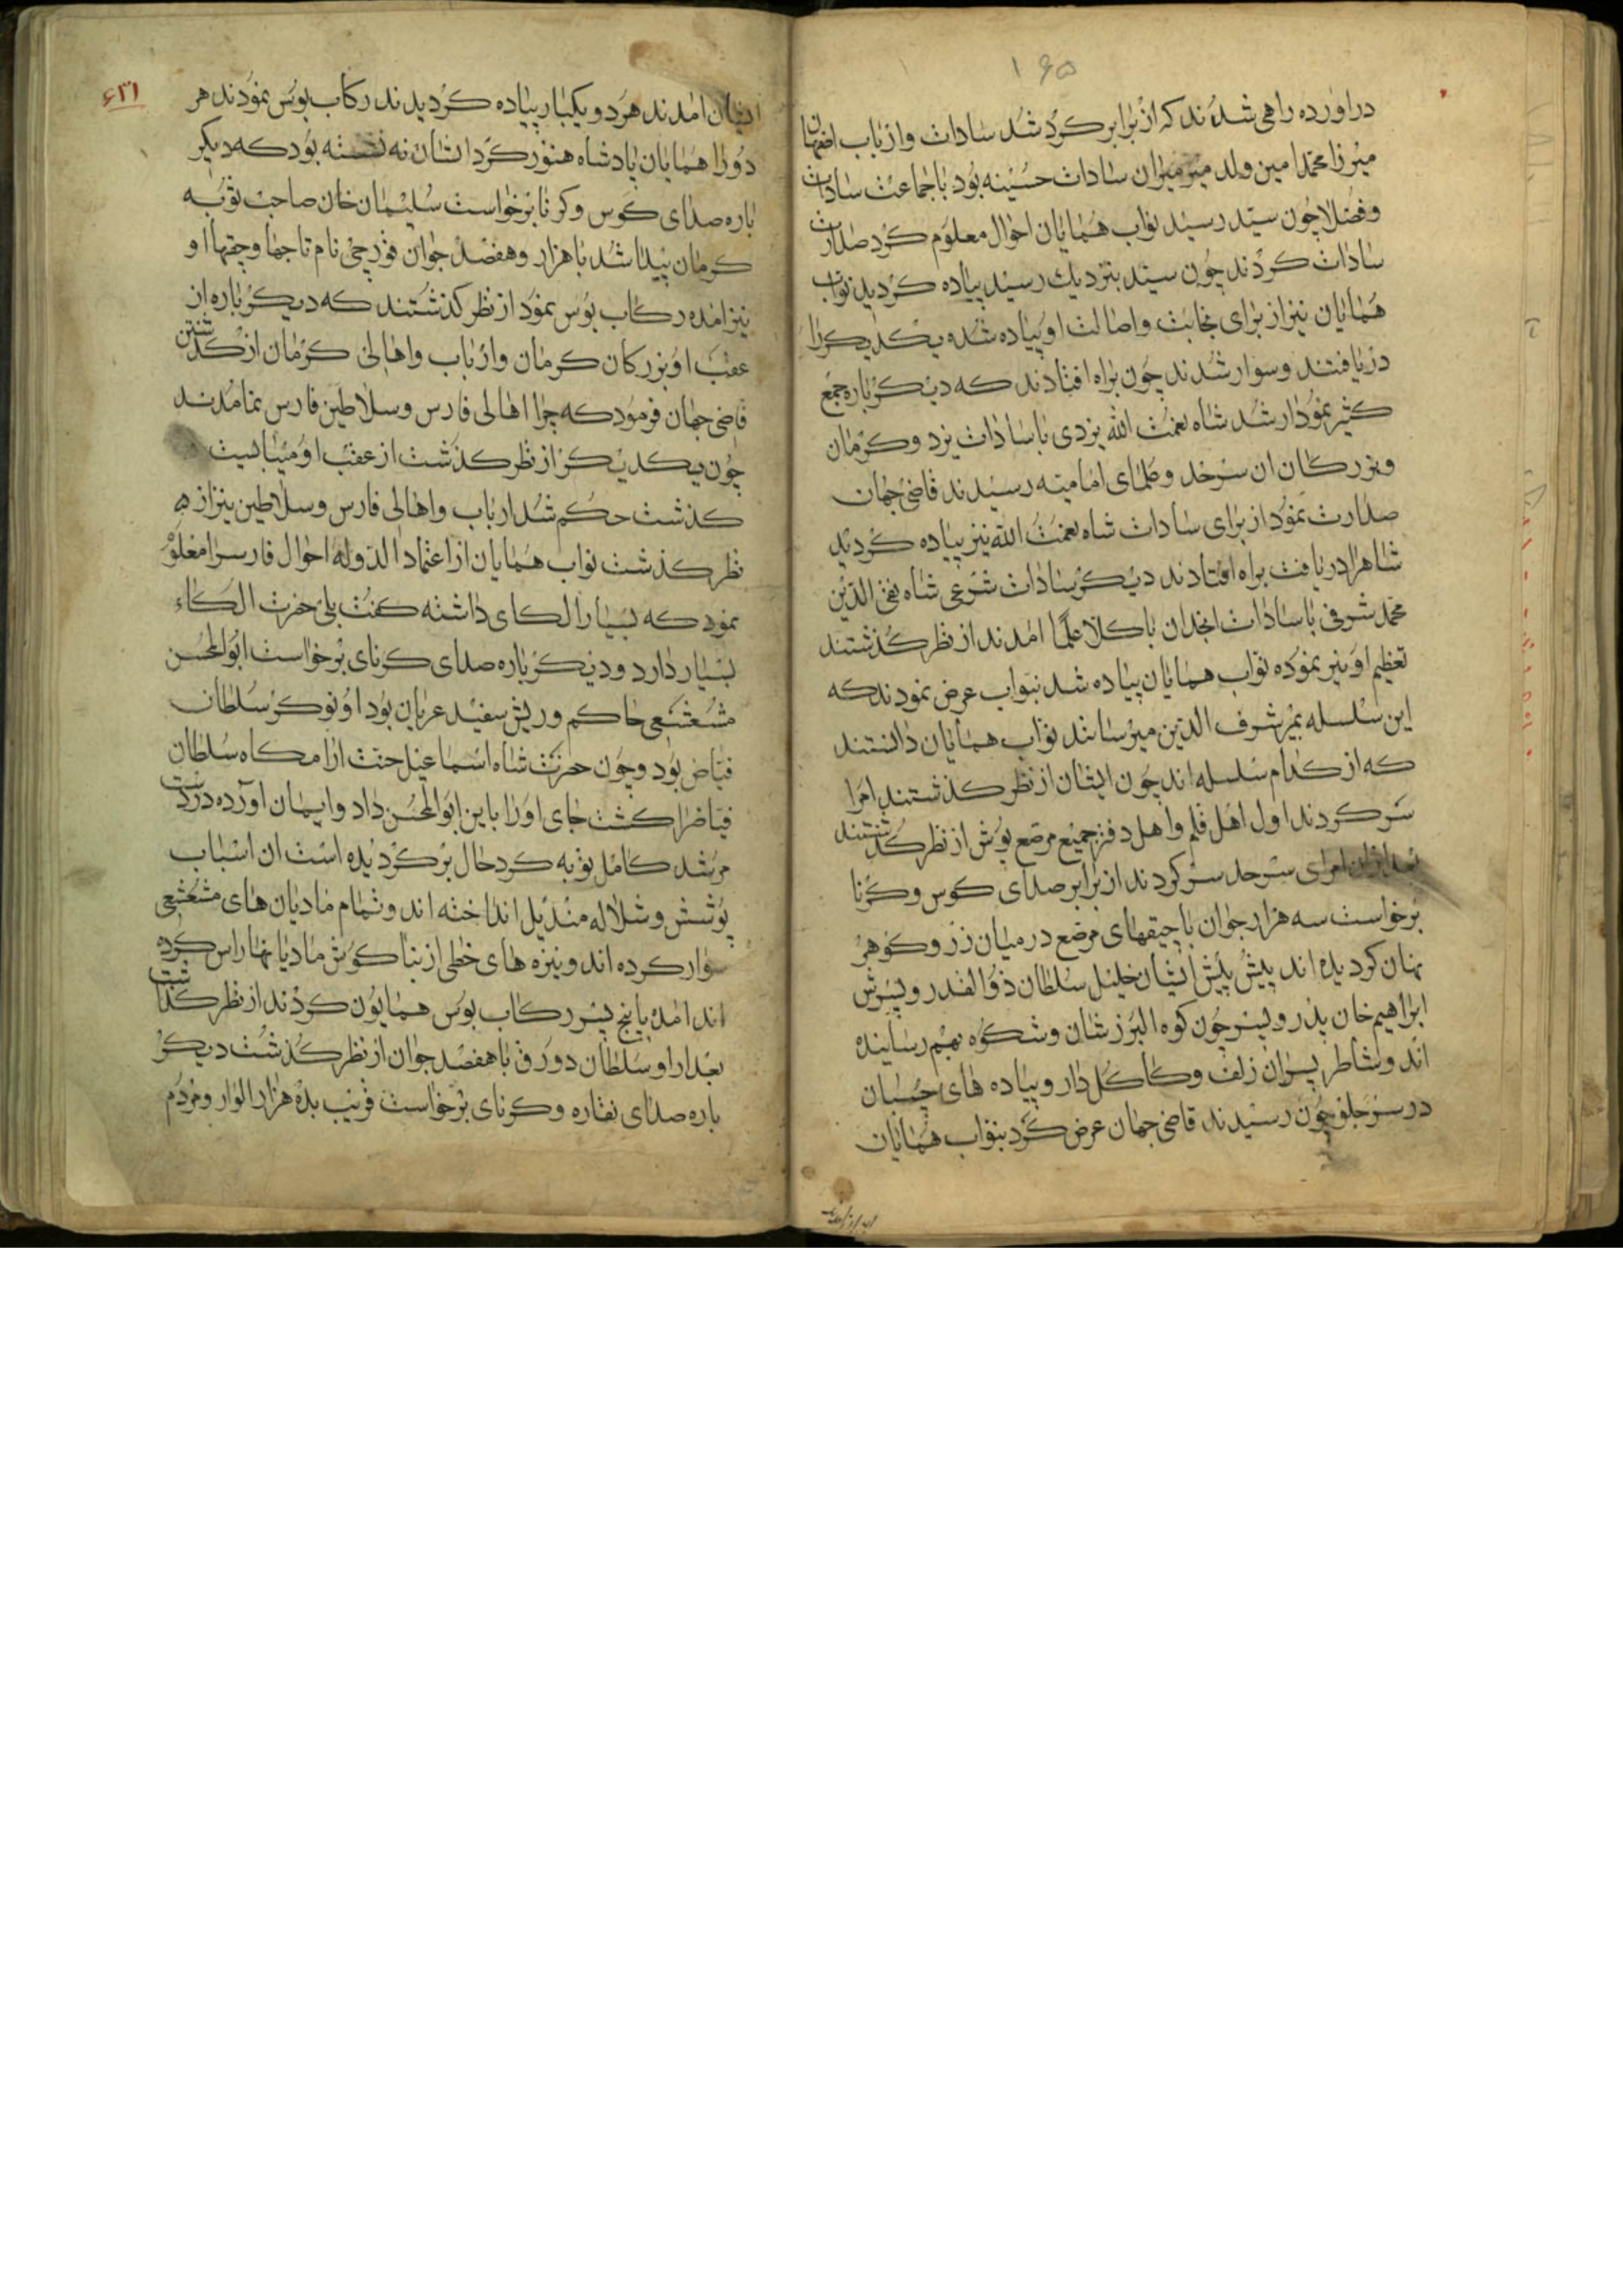 ۱۶۵
دراورده راهی شدند که از برابر کرد شد سادات وارباب اصفهان
میرزا محمد امین ولد میرمیران سادات حسینه بود باجماعت سادات
وفضلا چون سید رسید نواب همایان احوال معلوم کرد صدارت
سادات کردند چون سید بنزدیك رسید پیاده کردید نواب
همایان نیز از برای نجابت واصالت او پیاده شده یکدیکر را
دریافتند وسوار شدند چون براه افتادند که دیکر باره جمع
کثیر نمودار شد شاه نعمت الله یزدی باسادات یزد وکرمان
وبزرکان ان سرحد وعلمای امامیه رسیدند قاضی جهان
صدارت نمود از برای سادات شاه نعمت الله نیز پیاده کردید
شاهرا دریافت براه افتادند دیکر سادات شرعی شاه تقی الدین
محمد شرفی باسادات انجدان باکلا علما امدند از نظر کذشتند
تعظیم او نیز نموده نواب همایان پیاده شد بنواب عرض نمودند که
این سلسله بمیر شرف الدین میرسانند نواب همایان دانستند
که از کدام سلسله اند چون ایشان از نظر کذشتند امرا
سر کردند اول اهل قلم واهل دفتر جمیع مرصع پوش از نظر کذشتند
بعد از ان امرای سرحد سر کردند از برابر صدای کوس وکرنا
برخواست سه هزار جوان باجیقهای مرصع درمیان زر وکوهر
نهان کردیده اند پیش پیش ایشان خلیل سلطان ذوالقدر وپسرش
ابراهیم خان پدر وپسر چون کوه البرز شان وشکوه بهم رسانیده
اند وشاطر پسران زلف وکاکل دار وپیاده های چسبان
درسر جلو چون رسیدند قاضی جهان عرض کرد بنواب همایان
۶۳۱
ایشان امدند هردو یکبار پیاده کردیدند رکاب بوس نمودند هر
دو را همایان پادشاه هنوز کرد ایشان نه نشسته بود که دیکر
باره صدای کوس وکرنا برخواست سلیمان خان صاحب توبه
کرمان پیدا شد باهزار وهفصد جوان قورچی نام تاجها وجقها او
نیز امده رکاب بوس نمود از نظر کذشتند که دیکر باره از
عقب او بزرکان کرمان وارباب واهالی کرمان از کذشتن
قاضی جهان فرمود که چرا اهالی فارس وسلاطین فارس نمامدند
چون یکدیکر از نظر کذشت از عقب او میبایست
کذشت حکم شد ارباب واهالی فارس وسلاطین نیز از
نظر کذشت نواب همایان از اعتماد الدوله احوال فارس را معلوم
نمود که بسیار الکای داشته کفت بلی حضرت الکاء
بسیار دارد ودیکر باره صدای کرنای برخواست ابوالحسن
مشعشعی حاکم وریش سفید عربان بود او نوکر سلطان
فیاض بود وچون حضرت شاه اسماعیل جنت ارامکاه سلطان
فیاض را کشت جای اورا باین ابوالحسن داد وایمان آورده دردست
مرشد کامل توبه کرد حال برکردیده است ان اسباب
پوشش وشلاله مندیل انداخته اند وتمام مادیان های مشعشعی
سوار کرده اند ونیزه های خطی از بناکوش مادیانها راس کرده
اند امده باپنج پسر رکاب بوس همایون کردند از نظر کذشت
بعد از او سلطان دورق باهفصد جوان از نظر کذشت دیکر
باره صدای نقاره وکرنای برخواست قریب بده هزار الوار ومردم